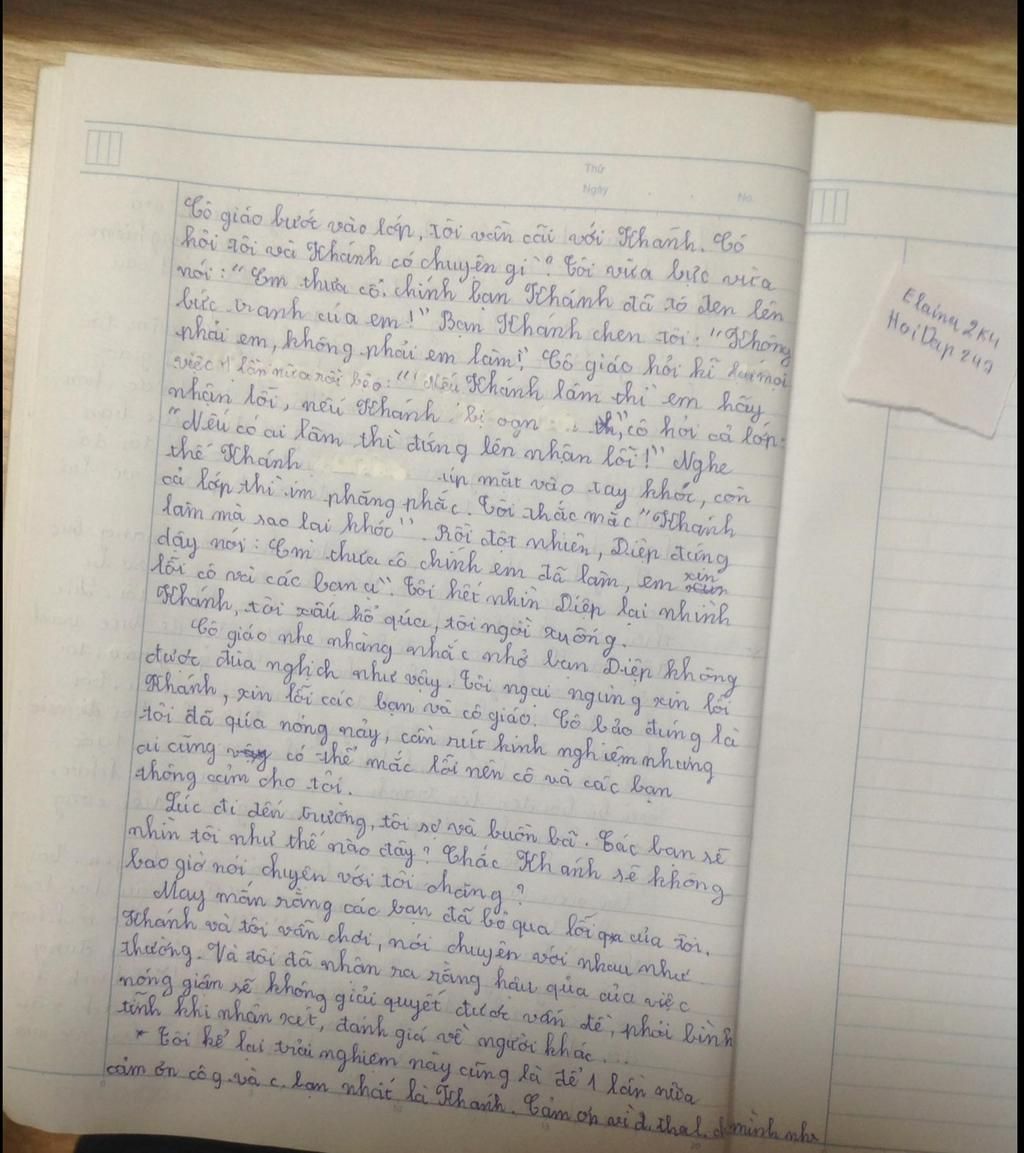 Thứ
Ngày
No.
Cô giáo bước vào lớp, tôi vẫn cãi với Khánh. Cô
hỏi tôi và Khánh có chuyện gì? Tôi vừa bực vừa
nói: "Em thưa cô, chính bạn Khánh đã tô đen lên
bức tranh của em!" Bạn Khánh chen tôi: "Không
phải em, không phải em làm!" Cô giáo hỏi kĩ lại mọi
việc 1 lần nữa rồi bảo: "Nếu Khánh làm thì em hãy
nhận lỗi, nếu Khánh bị oan", cô hỏi cả lớp:
"Nếu có ai làm thì đứng lên nhận lỗi!" Nghe
thế Khánh úp mặt vào tay khóc, còn
cả lớp thì im phăng phắc. Tôi thắc mắc "Khánh
làm mà sao lại khóc". Rồi đột nhiên, Diệp đứng
dậy nói: Em thưa cô chính em đã làm, em xin
lỗi cô và các bạn ạ". Tôi hết nhìn Diệp lại nhình
Khánh, tôi xấu hổ qúa, tôi ngồi xuống.
Cô giáo nhẹ nhàng nhắc nhở bạn Diệp không
được đùa nghịch như vậy. Tôi ngại ngùng xin lỗi
Khánh, xin lỗi các bạn và cô giáo. Cô bảo đúng là
tôi đã qúa nóng nảy, cần rút kinh nghiệm nhưng
ai cũng có thể mắc lỗi nên cô và các bạn
thông cảm cho tôi.
Lúc đi đến trường, tôi sợ và buồn bã. Các bạn sẽ
nhìn tôi như thế nào đây? Chắc Khánh sẽ không
bao giờ nói chuyện với tôi chăng?
May mắn rằng các bạn đã bỏ qua lỗi của tôi.
Khánh và tôi vẫn chơi, nói chuyện với nhau như
thường. Và tôi đã nhận ra rằng hậu qủa của việc
nóng giận sẽ không giải quyết được vấn đề, phải bình
tĩnh khi nhận xét, đánh giá về người khác...
* Tôi kể lại trải nghiệm này cũng là để 1 lần nữa
cảm ơn cô g. và c. bạn nhất là Khánh. Cảm ơn vì đ. tha l. mình nhé
Elaina2k4
HoiDap247